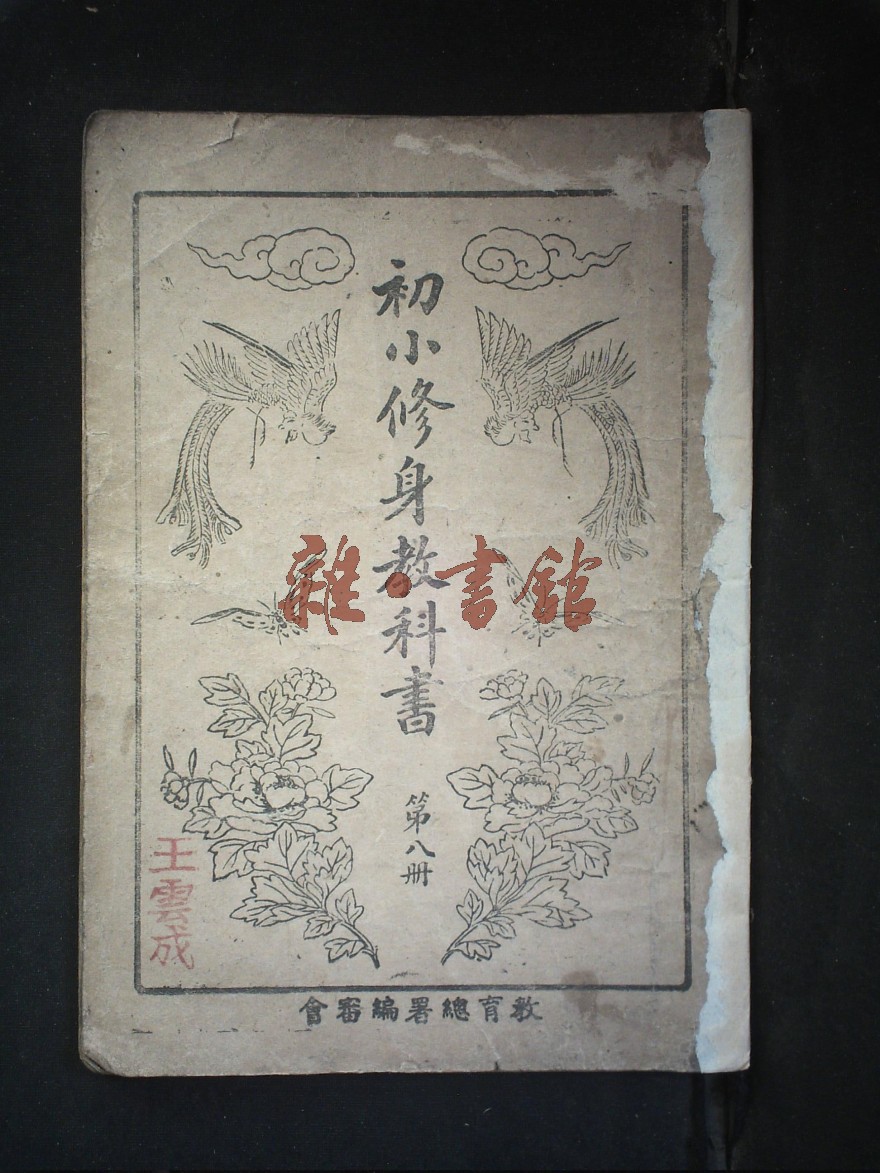 初小修身教科書
第八册
教育總署編審會
王雲成
雜·書館